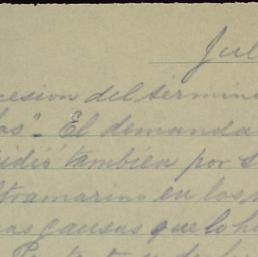 Jul
cesion del termino
os". El demanda
idió tambien por s
tramarino en los
as causas que lo h